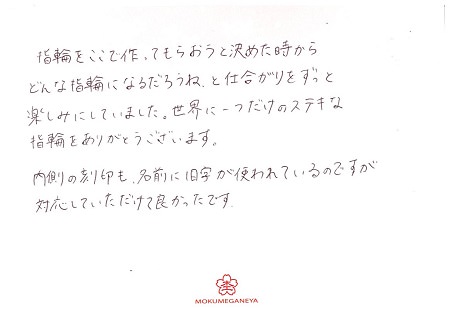 指輪をここで作ってもらおうと決めた時から
どんな指輪になるだろうね、と仕合がりをずっと
楽しみにしていました。世界に一つだけのステキな
指輪をありがとうございます。
内側の刻印も、名前に旧字が使われているのですが
対応していただけて良かったです。
MOKUMEGANEYA